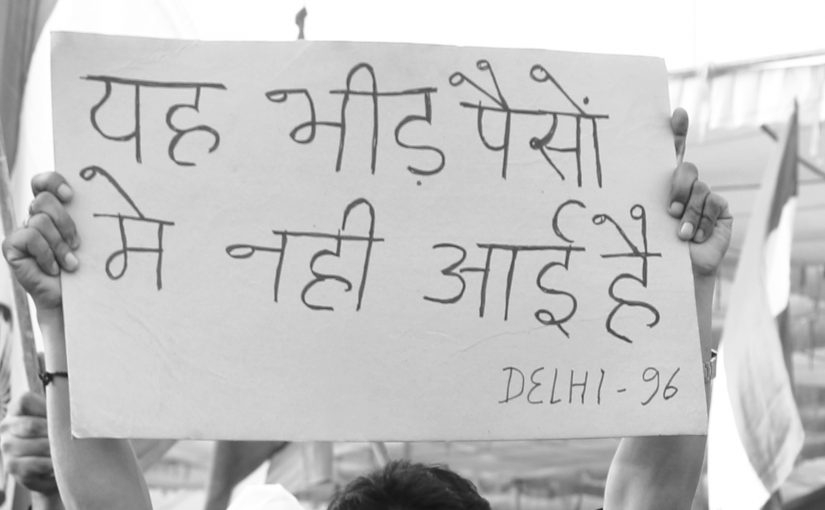 यह भीड़ पैसों
मे नही आई है
DELHI-96